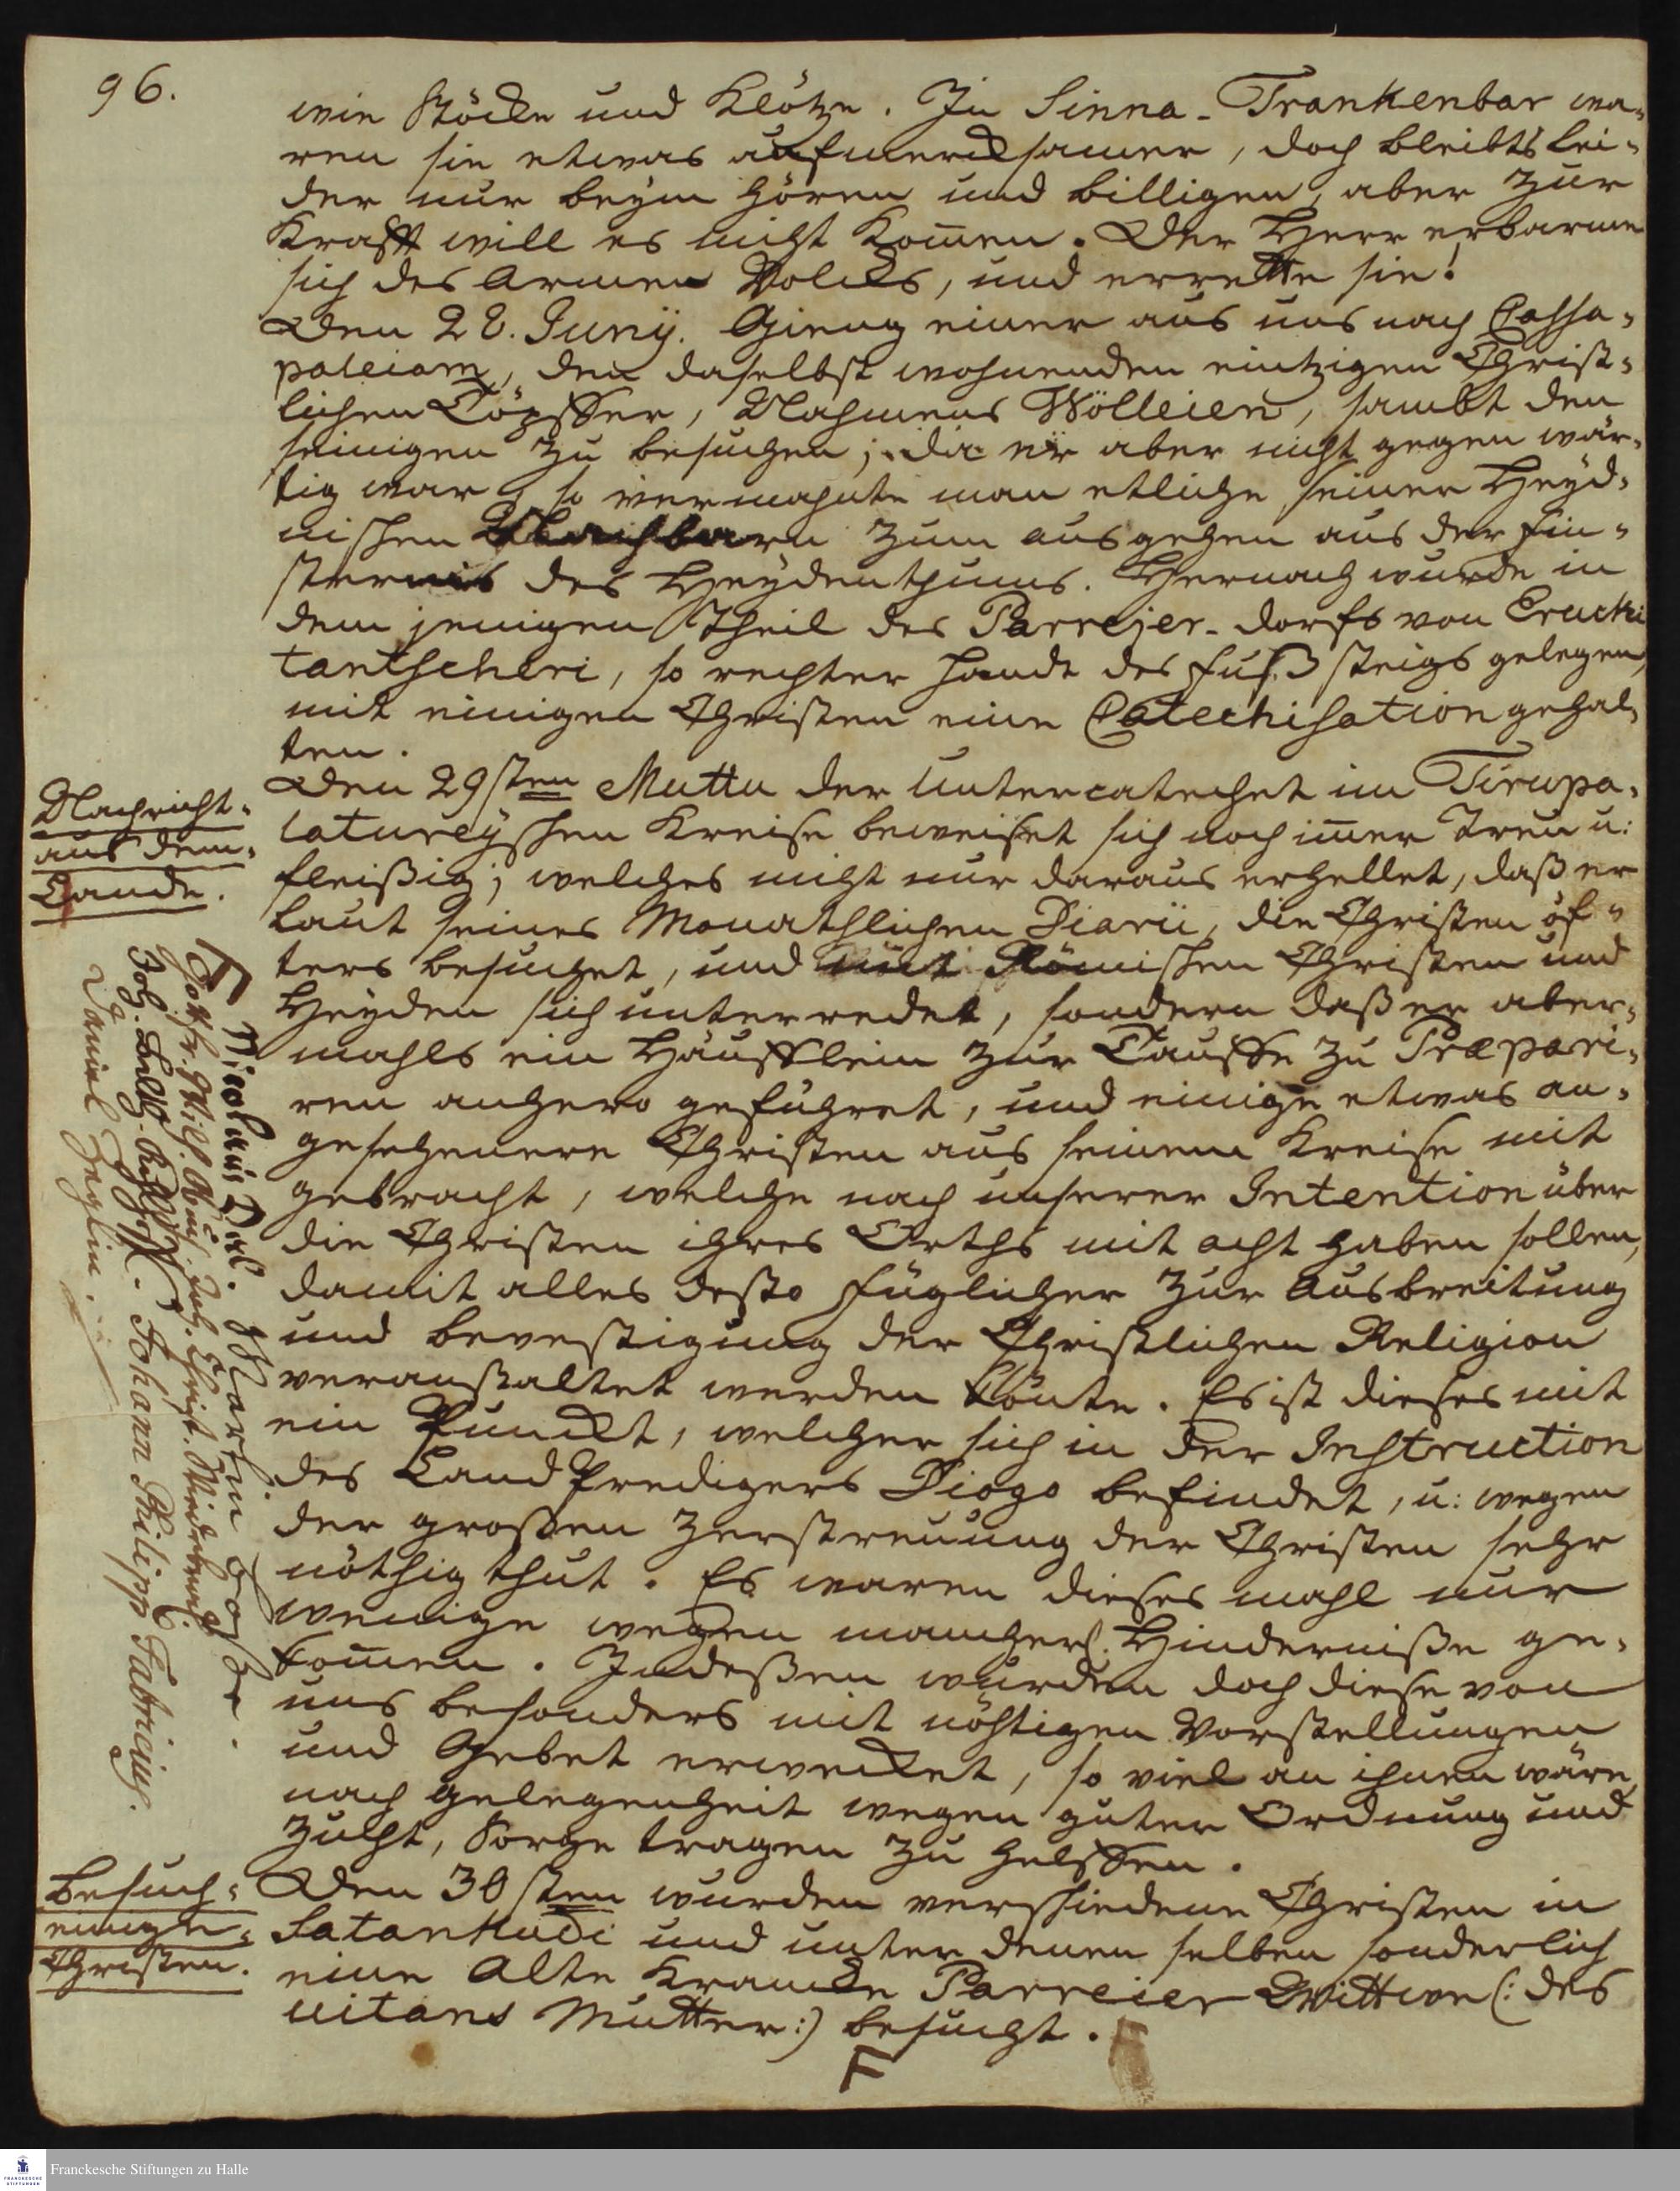 96.
wie Stöcke und Klötze. In Sinna-Trankenbar wa-
ren sie etwas aufmercksamer, doch bleibts lei-
der nur beym hören und billigen, aber zur
Krafft will es nicht kom̄en. Der Herr erbarme
sich des Armen Volcks, und errette sie!
Den 28. Junij. Gieng einer aus uns nach Cassa-
paleiam, den daselbst wohnenden eintzigen Christ-
lichen Töpffer, Nahmens Wölleien, sambt den
seinigen zu besuchen; da er aber nicht gegen wär-
tig war, so vermahnte man etliche seiner Heyd-
nischen Nachbarn zum ausgehen aus der Fin-
sternis des Heydenthums. Hernach wurde in
dem jenigen Theil des Parrejer-dorfs von Erucki
tantscheri, so rechter Handt des Fuß steigs gelegen,
mit einigen Christen eine Catechisation gehal-
ten.
Nachricht
aus dem
Lande.
Den 29sten Muttu der Untercatechet im Tirupa-
latureyschen Kreise beweiset sich noch im̄er Treu u:
fleißig; welches nicht nur daraus erhellet, daß er
laut seines Monathlichen Diarii, die Christen öf-
ters besuchet, und mit Römischen Christen und
Heyden sich unterredet, sondern daß er aber-
mahls ein Häufflein zur Tauffe zu Præpari-
ren anhero geführet, und einige etwas an-
gesehenere Christen aus seinem Kreise mit
gebracht, welche nach unserer Intention über
die Christen ihres Orths mit acht haben sollen,
damit alles desto füglicher zur Ausbreitung
und bevestigung der Christlichen Religion
veranstaltet werden könte. Es ist dieses mit
ein Punckt, welcher sich in der Instruction
des Land Predigers Diogo befindet, u: wegen
der großen Zerstreuung der Christen sehr
nöthig thut. Es waren dieses mahl nur
wenige wegen mancherl. Hinderniße ge-
kom̄en. Indeßen wurden doch diese von
uns besonders mit nöhtigen Vorstellungen
und Gebet erwecket, so viel an ihnen wäre,
nach gelegenheit wegen guter Ordnung und
Zucht, Sorge tragen zu helffen.
Besuch
einiger
Christen.
Den 30sten wurden verschiedene Christen in
Satankudi und unter denen selben sonderlich
eine Alte Krancke Parreier Wittwe (: des
uitans Mutter:) besucht.
F
F Nicolaus Dal. Martin Bosse.
Gottfr. Wilh. Obuch. Joh. Christ. Wiedebrock.
Joh. Balth. Kohlhoff. Johann Philipp Fabricius.
Daniel Zeglin.
Franckesche Stiftungen zu Halle